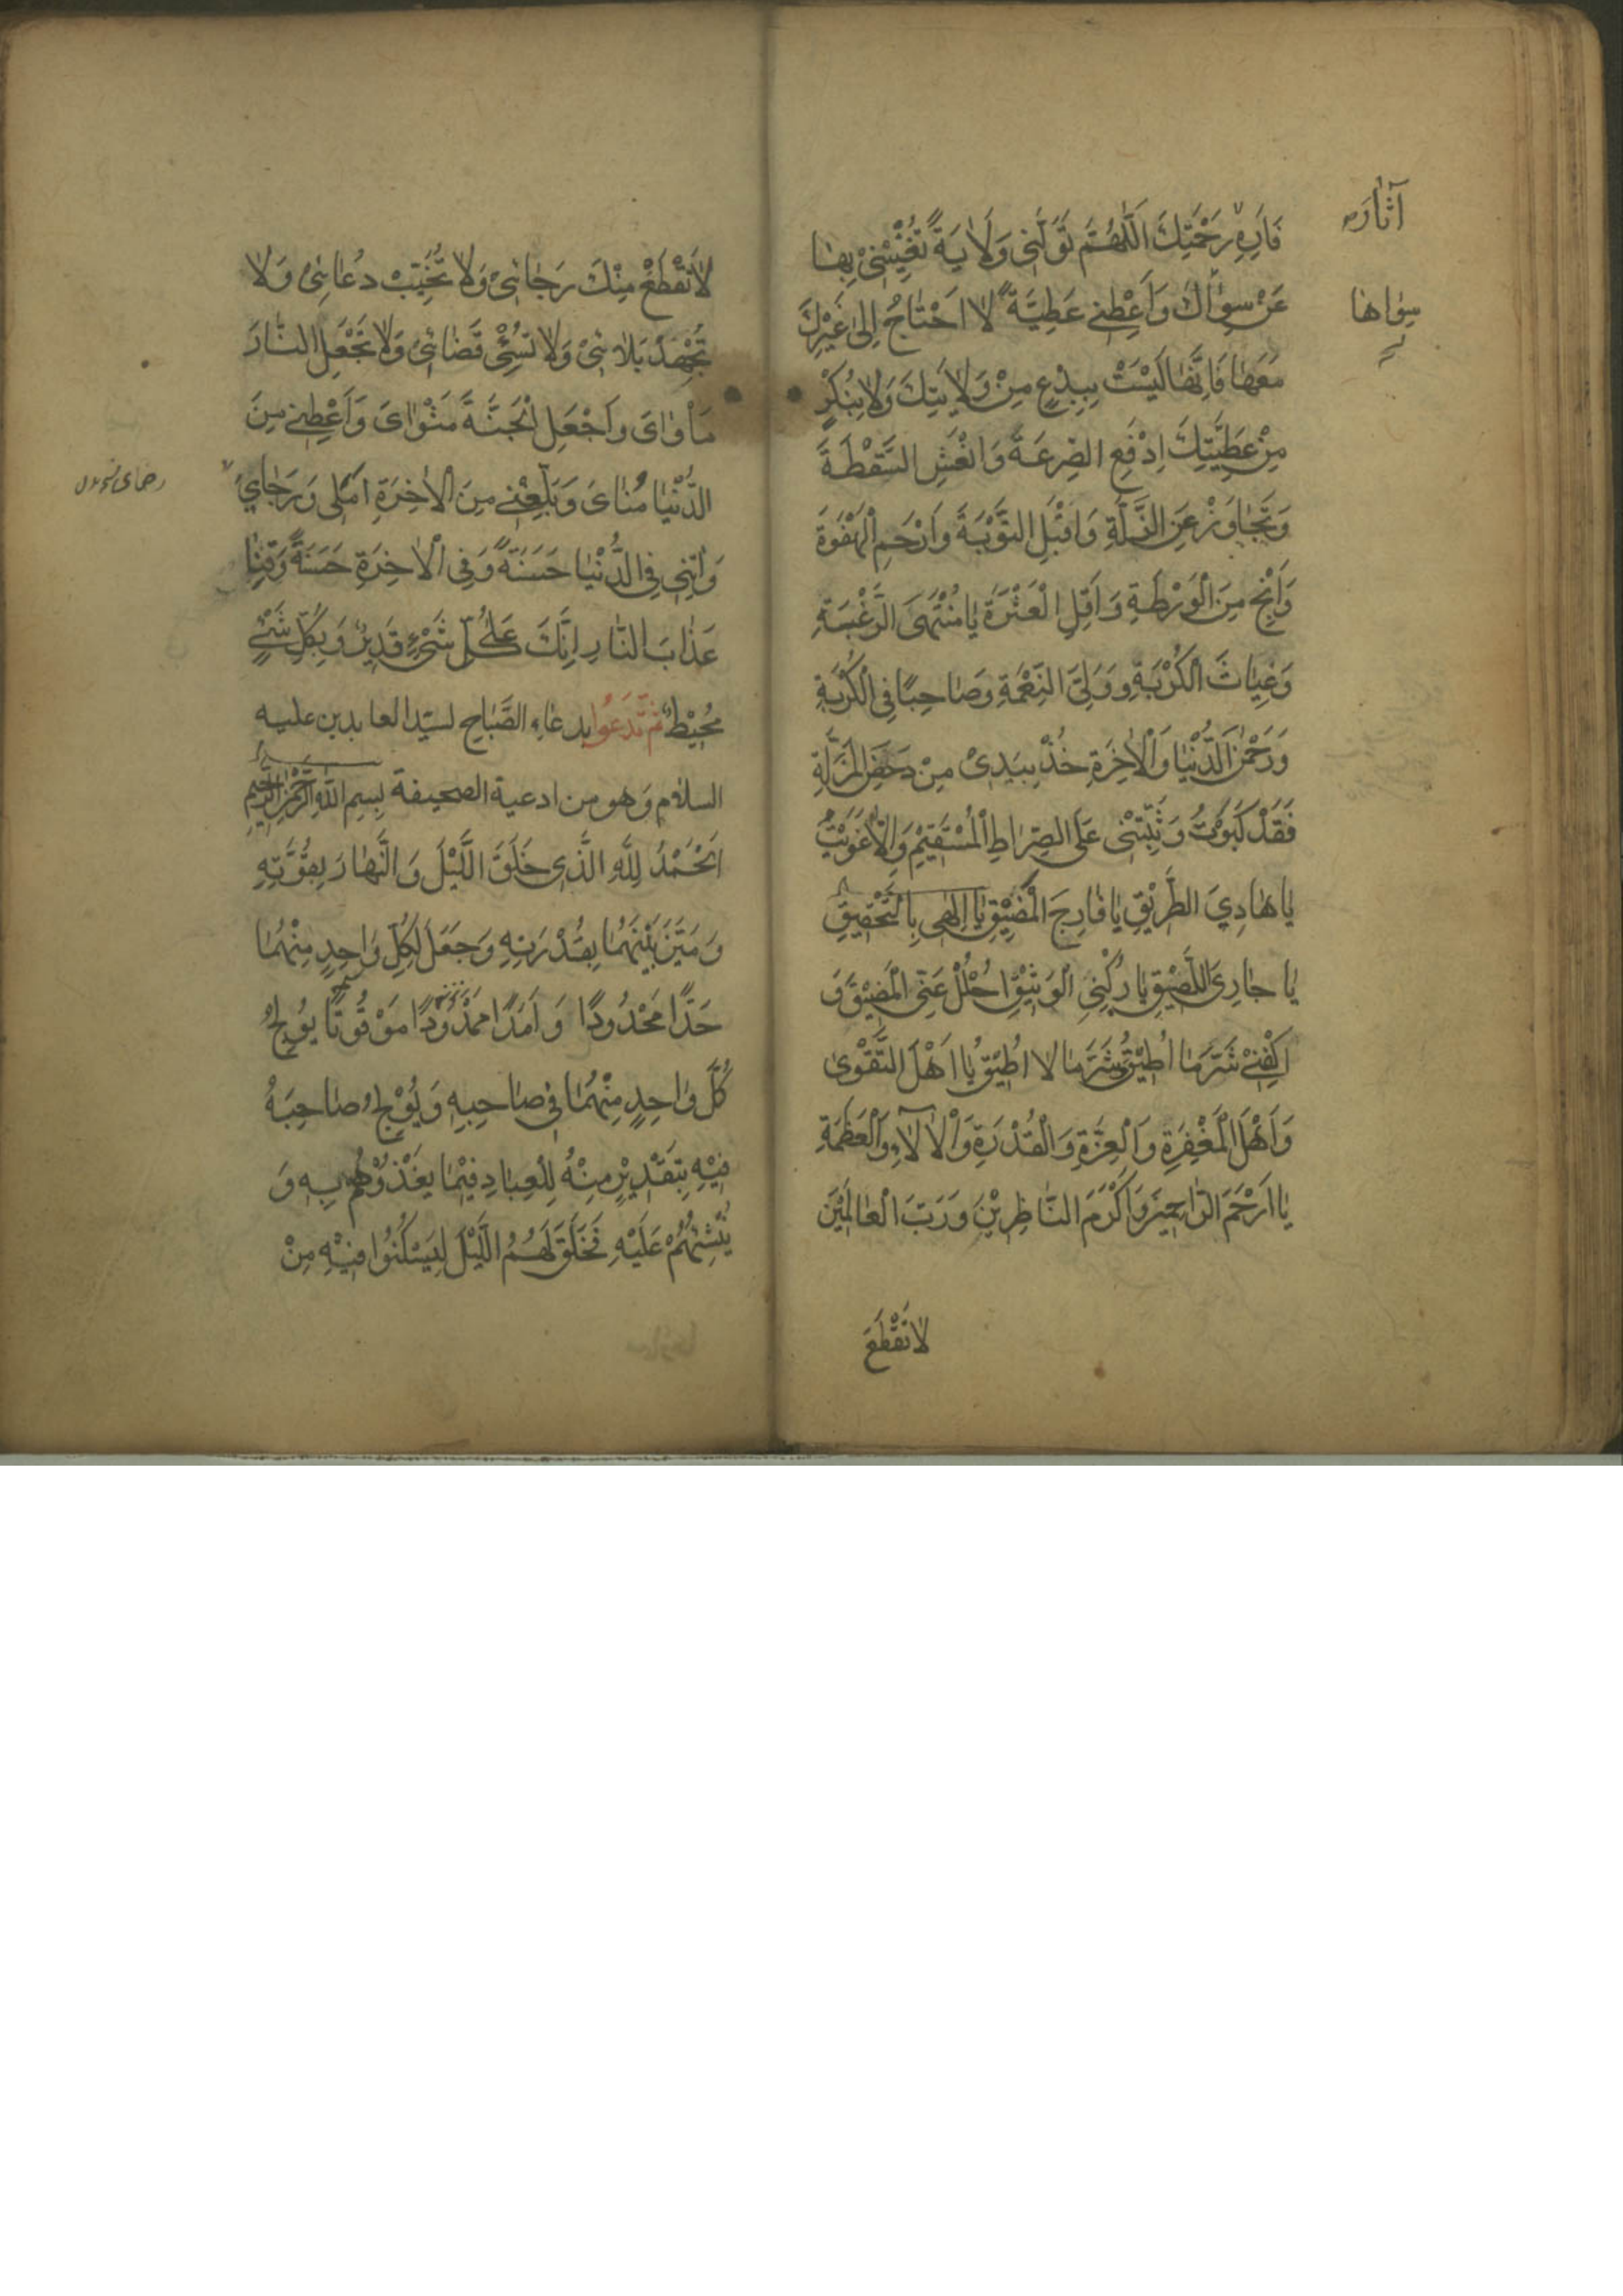 فَارِهِ رَحْمَتِكَ اَللّٰهُمَّ تَوَلَّنِى وَلَايَةً تُغْنِيْنِىْ بِهَا
آثَارَ
عَنْ سِوَاكَ وَاَعْطِنِى عَطِيَّةً لَا اَحْتَاجُ اِلٰى غَيْرِكَ
سِوَاهَا
مَعَهَا فَاِنَّهَا لَيْسَتْ بِبِدْعٍ مِنْ وَلَايَتِكَ وَلَا بِنُكْرٍ
مِنْ عَطِيَّتِكَ اِدْفَعِ الصَّرْعَةَ وَانْعَشِ السَّقْطَةَ
وَتَجَاوَزْ عَنِ الزَّلَّةِ وَاقْبَلِ التَّوْبَةَ وَارْحَمِ الْهَفْوَةَ
وَاَنْجِ مِنَ الْوَرْطَةِ وَاَقِلِ الْعَثْرَةَ يَا مُنْتَهَى الرَّغْبَةِ
وَغِيَاثَ الْكُرْبَةِ وَوَلِىَّ النِّعْمَةِ وَصَاحِبًا فِى الْكُرْبَةِ
وَرَحْمٰنَ الدُّنْيَا وَالْاٰخِرَةِ خُذْ بِيَدِىْ مِنْ دَحْضِ الْمَزَلَّةِ
فَقَدْ كَبَوْتُ وَثَبِّتْنِى عَلَى الصِّرَاطِ الْمُسْتَقِيْمِ وَاِلَّا غَوَيْتُ
يَا هَادِىَ الطَّرِيْقِ يَا فَارِجَ الْمَضِيْقِ يَا اِلٰهِى بِالتَّحْقِيْقِ
يَا جَارِىَ اللَّصِيْقِ يَا رُكْنِىَ الْوَثِيْقَ اُحْلُلْ عَنِّى الْمَضِيْقَ وَ
اكْفِنِىْ شَرَّ مَا اُطِيْقُ وَشَرَّ مَا لَا اُطِيْقُ يَا اَهْلَ التَّقْوٰى
وَاَهْلَ الْمَغْفِرَةِ وَالْعِزَّةِ وَالْقُدْرَةِ وَالْاٰلَاءِ وَالْعَظَمَةِ
يَا اَرْحَمَ الرَّاحِمِيْنَ وَاَكْرَمَ النَّاظِرِيْنَ وَرَبَّ الْعَالَمِيْنَ
لَا تَقْطَعْ
لَا تَقْطَعْ مِنْكَ رَجَائِىْ وَلَا تُخَيِّبْ دُعَائِىْ وَلَا
تُجْهِدْ بَلَائِىْ وَلَا تُسِئْ قَضَائِىْ وَلَا تَجْعَلِ النَّارَ
مَاْوَاىَ وَاجْعَلِ الْجَنَّةَ مَثْوَاىَ وَاَعْطِنِى مِنَ
الدُّنْيَا مُنَاىَ وَبَلِّغْنِى مِنَ الْاٰخِرَةِ اَمَلِى وَرَجَاىَ
وَاٰتِنِى فِى الدُّنْيَا حَسَنَةً وَفِى الْاٰخِرَةِ حَسَنَةً وَقِنَا
عَذَابَ النَّارِ اِنَّكَ عَلٰى كُلِّ شَىْءٍ قَدِيْرٌ وَبِكُلِّ شَىْءٍ
مُحِيْطٌ ثُمَّ تَدْعُوا بدعاء الصَّبَاحِ لسيّد العابدين عليه
السلام وَهو من ادعية الصحيفة بِسمِ اللّٰهِ الرَّحْمٰنِ الرَّحِيمِ
اَلْحَمْدُ لِلّٰهِ الَّذِى خَلَقَ اللَّيْلَ وَالنَّهَارَ بِقُوَّتِهِ
وَمَيَّزَ بَيْنَهُمَا بِقُدْرَتِهِ وَجَعَلَ لِكُلِّ وَاحِدٍ مِنْهُمَا
حَدًّا مَحْدُودًا وَاَمَدًا مَمْدُوْدًا مَوْقُوتًا يُوْلِجُ
كُلَّ وَاحِدٍ مِنْهُمَا فِى صَاحِبِهِ وَيُوْلِجُ صَاحِبَهُ
فِيْهِ بِتَقْدِيْرٍ مِنْهُ لِلْعِبَادِ فِيْمَا يَغْذُوْهُمْ بِهِ وَ
يُنْشِئُهُمْ عَلَيْهِ فَخَلَقَ لَهُمُ اللَّيْلَ لِيَسْكُنُوا فِيْهِ مِنْ